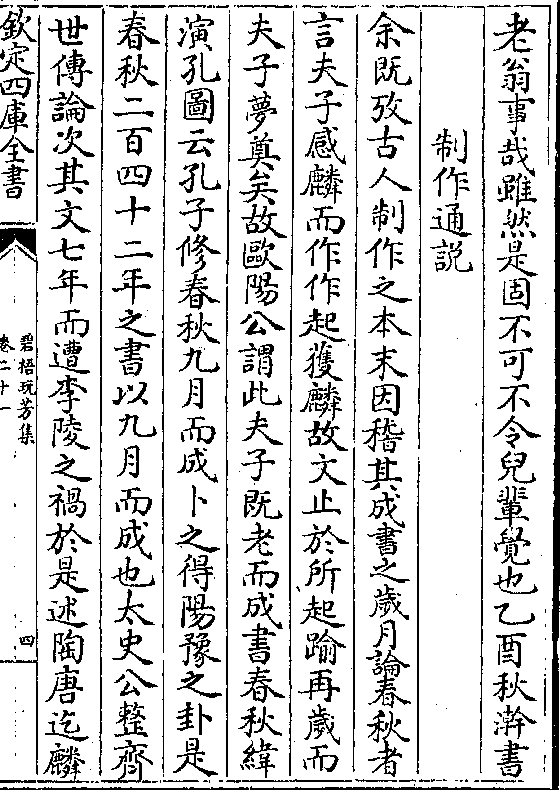 老翁事哉雖然是固不可不令兒輩覺也乙酉秋澣書
制作通説
余既攷古人制作之本末因稽其成書之歲月論春秋者
言夫子感麟而作作起獲麟故文止於所起踰再歲而
夫子夢奠矣故歐陽公謂此夫子既老而成書春秋緯
演孔圖云孔子修春秋九月而成卜之得陽豫之卦是
春秋二百四十二年之書以九月而成也太史公整齊
世傳論次其文七年而遭李陵之禍於是述陶唐迄麟
欽定四庫全書
碧梧玩芳集
卷二十一
四